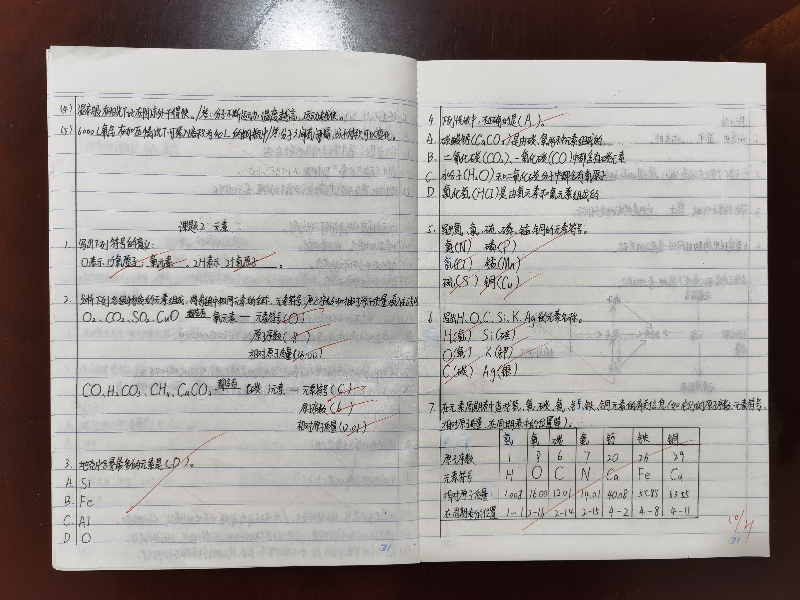 (4) 湿衣服在 下比在阴凉处干得快。/答:分子不断运动,温度越高,运动越快。
(5) 6000L氧气在加压情况下可装入容积为40L的钢瓶中/答:分子之间有间隔,分子间隔可以变化。
课题2 元素:
1. 写出下列符号的意义:
O表示 氧原子;氧元素 , 2H表示 2个氢原子 。
2. 分析下列各组物质的元素组成,将每组中相同元素的名称、元素符号、原子序数和相对原子质量填入
O₂、CO₂、SO₂、CuO 氧元素 — 元素符号(O)
原子序数(8)
相对原子质量(16.00)
CO、H₂CO₃、CH₄、CaCO₃ (碳)元素 — 元素符号(C)
原子序数(6)
相对原子质量(12.01)
3. 地壳中含量最多的元素是(D)。
A. Si
B. Fe
C. Al
D. O
4. 下列说法中,不正确的是(A)。
A. 碳酸钙(CaCO₃)是由碳、氧 元素组成的
B. 二氧化碳(CO₂)、一氧化碳(CO)中都含有碳元素
C. 水分子(H₂O)和二氧化碳分子中都含有氧原子
D. 氯化氢(HCl)是由氢元素和氯元素组成的
5. 写出氮、氯、硫、磷、锰、铜的元素符号。
氮(N) 磷(P)
氯(Cl) 锰(Mn)
硫(S) 铜(Cu)
6. 写出H、O、C、Si、K、Ag的元素名称。
H(氢) Si(硅)
O(氧) K(钾)
C(碳) Ag(银)
7. 在元素周期表中查找氢、氧、碳、氮、钙、铁、铜元素的有关信息(如 的原子序数、元素符号、
相对原子质量、在周期表中的位置等)。
氢 氧 碳 氮 钙 铁 铜
原子序数 1 8 6 7 20 26 29
元素符号 H O C N Ca Fe Cu
相对原子质量 1.008 16.00 12.01 14.01 40.08 55.85 63.55
在周期表中位置 1-1 2-16 2-14 2-15 4-2 4-8 4-11
10/21